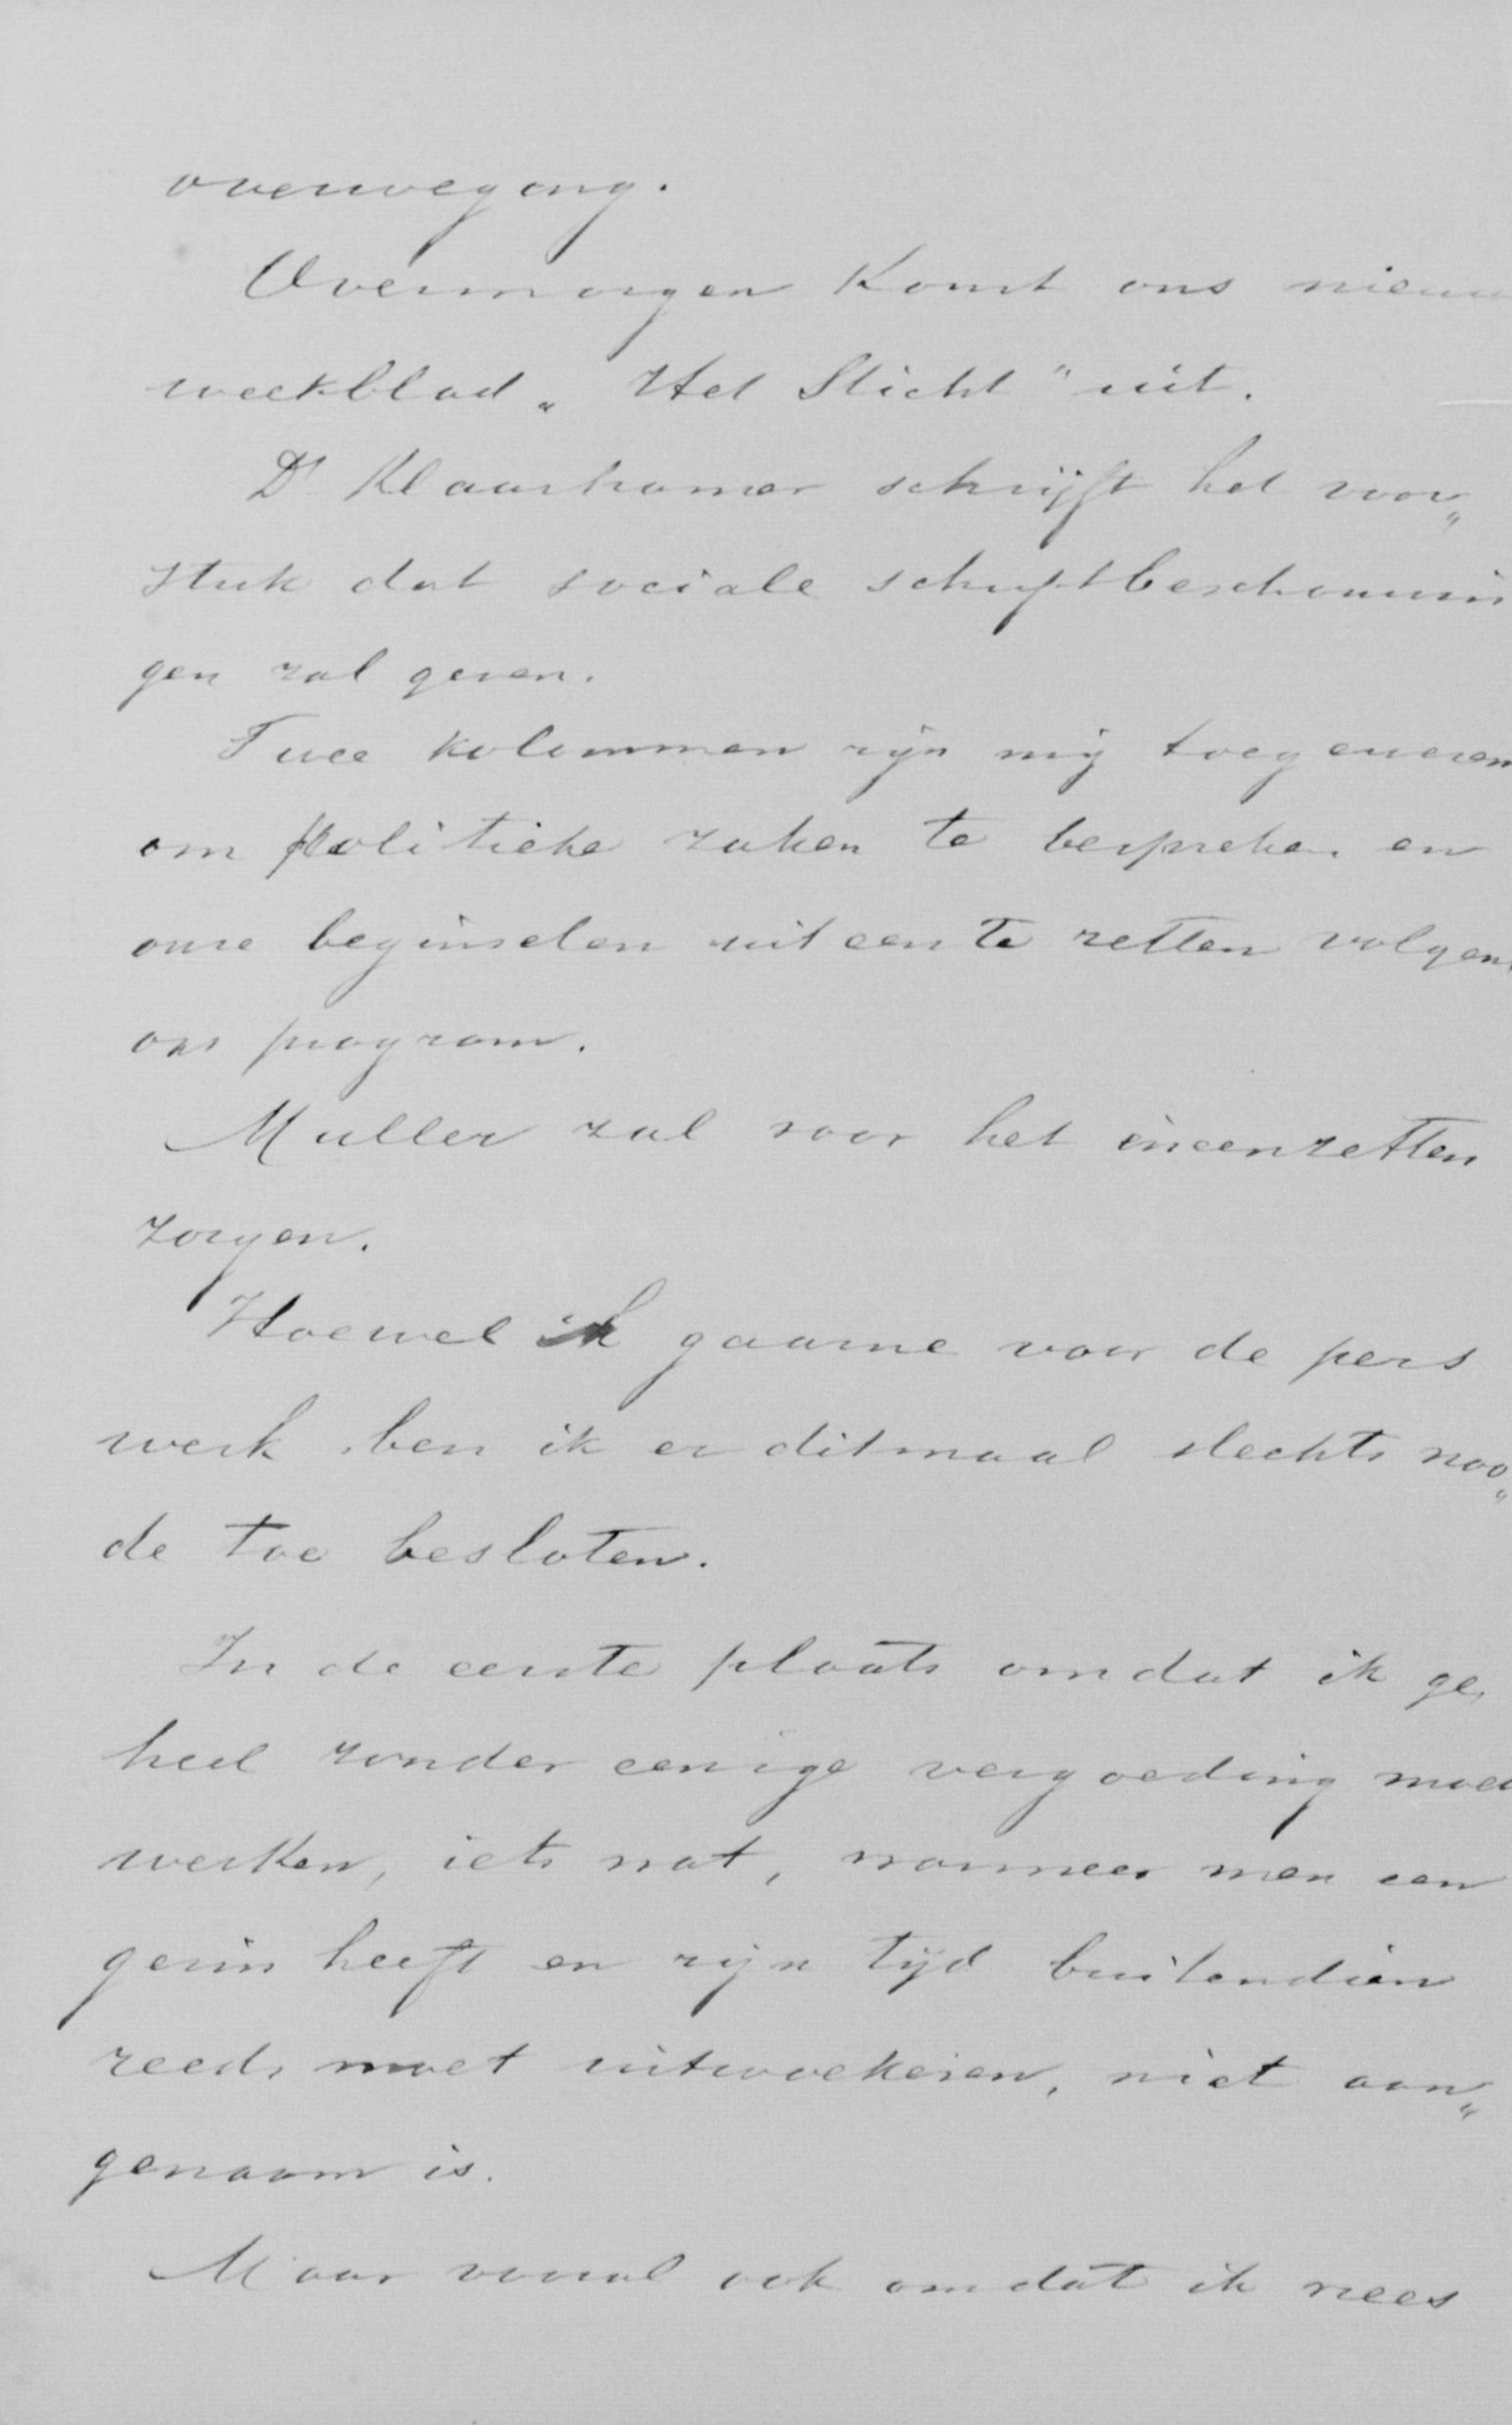 overweging.
Overmorgen komt ons nieuw
weekblad „Het Sticht" uit.
Dr Klaarhamer schrijft het voor„
stuk dat sociale schriftbeschouwin
gen zal geven.
Twee kolommen zijn mij toegewezen
om politieke zaken te bespreken en
onze beginselen uiteen te zetten volgens
ons program.
Muller zal voor het ineenzetten
zorgen.
Hoewel ik gaarne voor de pers
werk ben ik er ditmaal slechts noo„
de toe besloten.
In de eerste plaats omdat ik ge„
heel zonder eenige vergoeding moet
werken, iets wat, wanneer men een
gezin heeft en zijn tijd buitendien
reeds moet uitwoekeren, niet aan„
genaam is.
Maar vooral ook omdat ik vrees